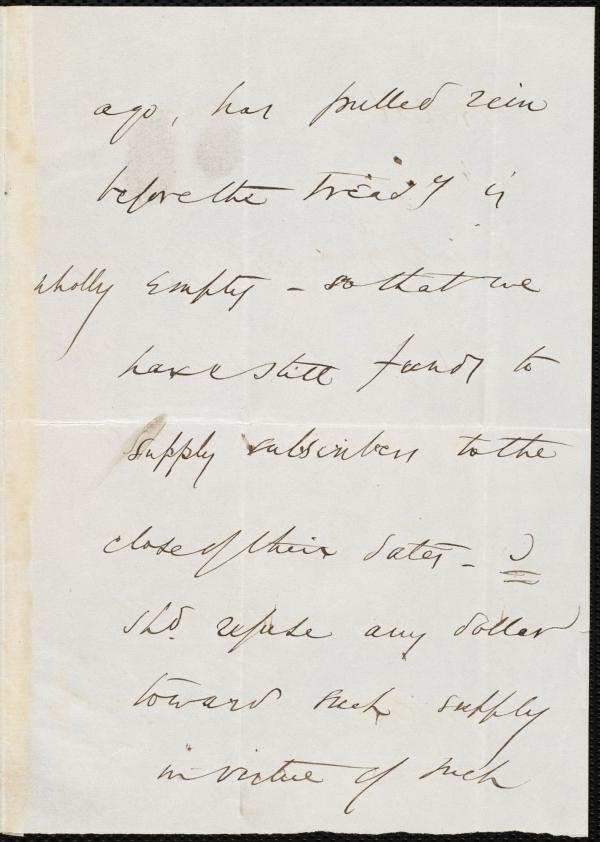 ago, has pulled rein
before the Treasy is
wholly empty - so that we
have still funds to
supply subscribers to the
close of their dates - I
shd. refuse any dollar
toward such supply
in virtue of such